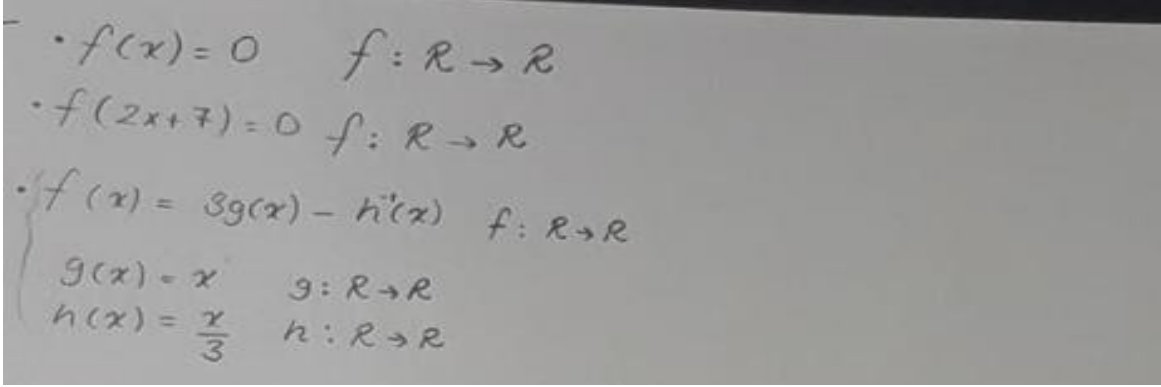 • f(x) = 0 f : R → R
• f(2x+7) = 0 f : R → R
• f(x) = 3g(x) - h⁻¹(x) f : R → R
g(x) = x g : R → R
h(x) = x/3 h : R → R